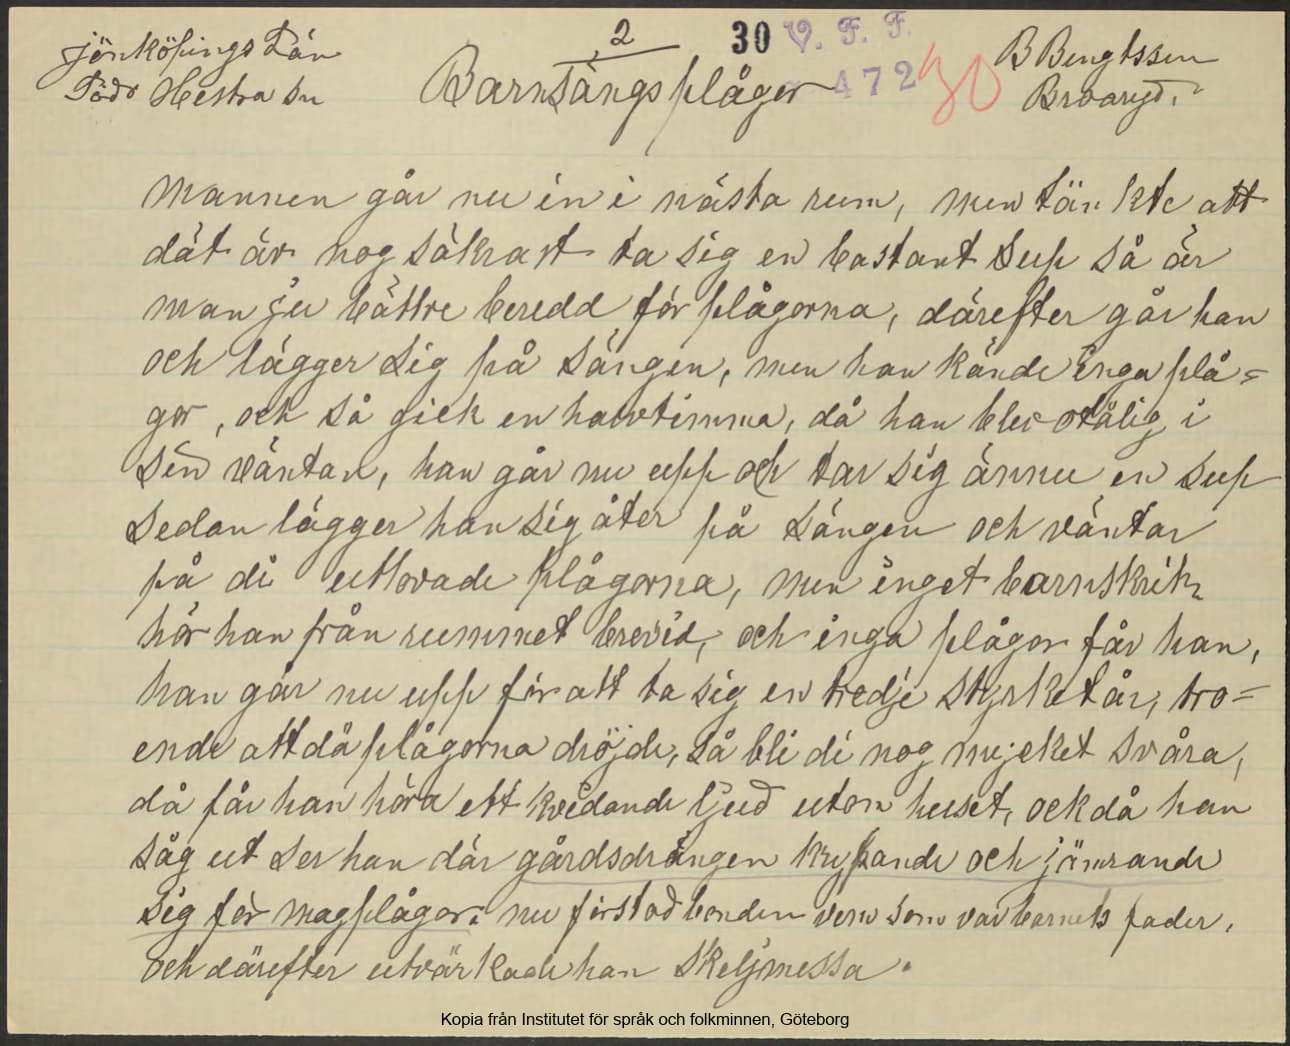 Jönköpings Län
Södr Hestra Sn
2
Barnsängsplågor
30 V. F. F.
472
30
B Bengtsson
Brvaryd.
Mannen går nu in i nästa rum, men tänkte att
dät är nog säkrast ta sig en bastant Sup så är
man ju bättre beredd för plågorna, därefter går han
och lägger sig på sängen, men han kände inga plå=
gor, och så gick en halvtimma, då han blev otålig i
sin väntan, han går nu upp och tar sig ännu en sup
sedan lägger han sig åter på sängen och väntar
på di utlovade plågorna, men inget barnskrik
hör han från rummet brevid, och inga plågor får han,
han går nu upp för att ta sig en tredje styrketår, tro=
ende att då plågorna dröjde, så bli di nog mycket svåra,
då får han höra ett kvidande ljud utom huset, och då han
såg ut ser han där gårdsdrängen krypande och jämrande
sig för magplågor. nu förstod bonden vem som var barnets fader,
och därefter utvärkade han Skeljmessa.
Kopia från Institutet för språk och folkminnen, Göteborg